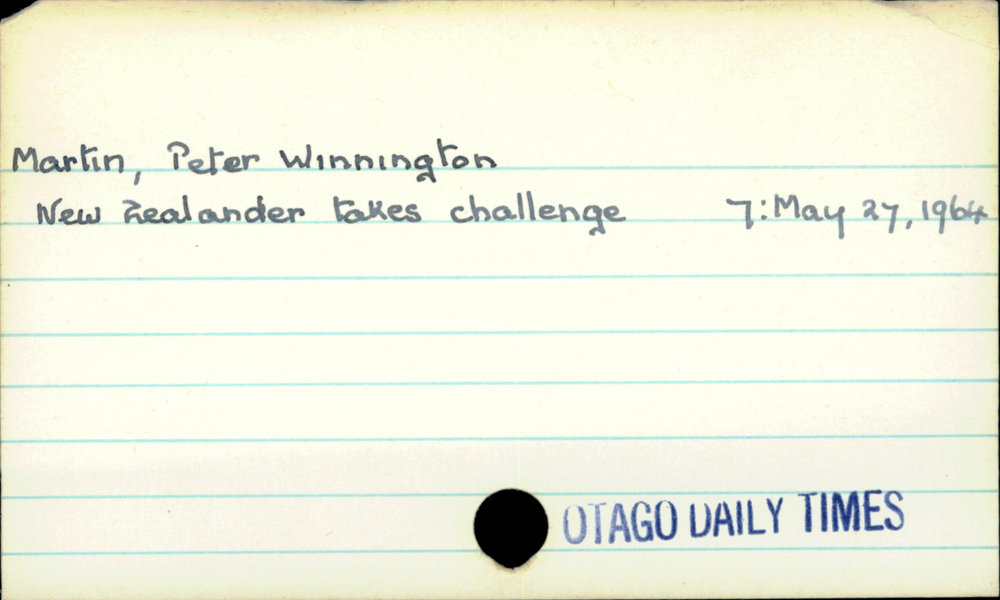 Martin, Peter Winnington
New Zealander takes challenge 7: May 27, 1964
OTAGO DAILY TIMES